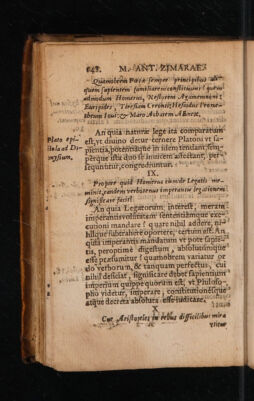 648. M. ANT. ZIMARAE.
Quamobrem Poetæ semper principibus ali-
quem sapientem familiarem constituunt? quem-
admodum Homerus, Nestorem Agamemnoni:
Euripides, Tiresiam Creonti: Hesiodus Prome-
theum Ioui: & Maro Achatem Aeneæ,
An quia naturæ lege ita comparatum
est, vt diuino detur cernere Platoni vt sa-
pientia, potentiaque in idem tendant, sem-
pérque ista duo se inuicem affectant, per-
sequuntur, congrediuntur.
Plato epi-
stola ad Di-
onysium.
IX.
Propter quid Homerus eiusdē Legatis me-
minit, eandem verborum imperantis legationem
significare facit?
An quia Legatorum, interest, meram
imperantis voluntatem sententiámque exe-
cutioni mandare? quare nihil addere, ni-
hilque subtrahere oportere, certum est. An
quia imperantis mandatum vt pote sapien-
tis, peroptimè digestum, absolutúmque
esse præsumitur? quamobrem variatur or-
do verborum, & tanquam perfectus, cui
nihil desiciat, significare debet sapientium
imperium quippe quorum est, vt Philoso-
pho videtur, imperare, constitutionésque
atque decreta absoluta esse iudicare.
X.
Cur Aristoteles in rebus difficilibus mira